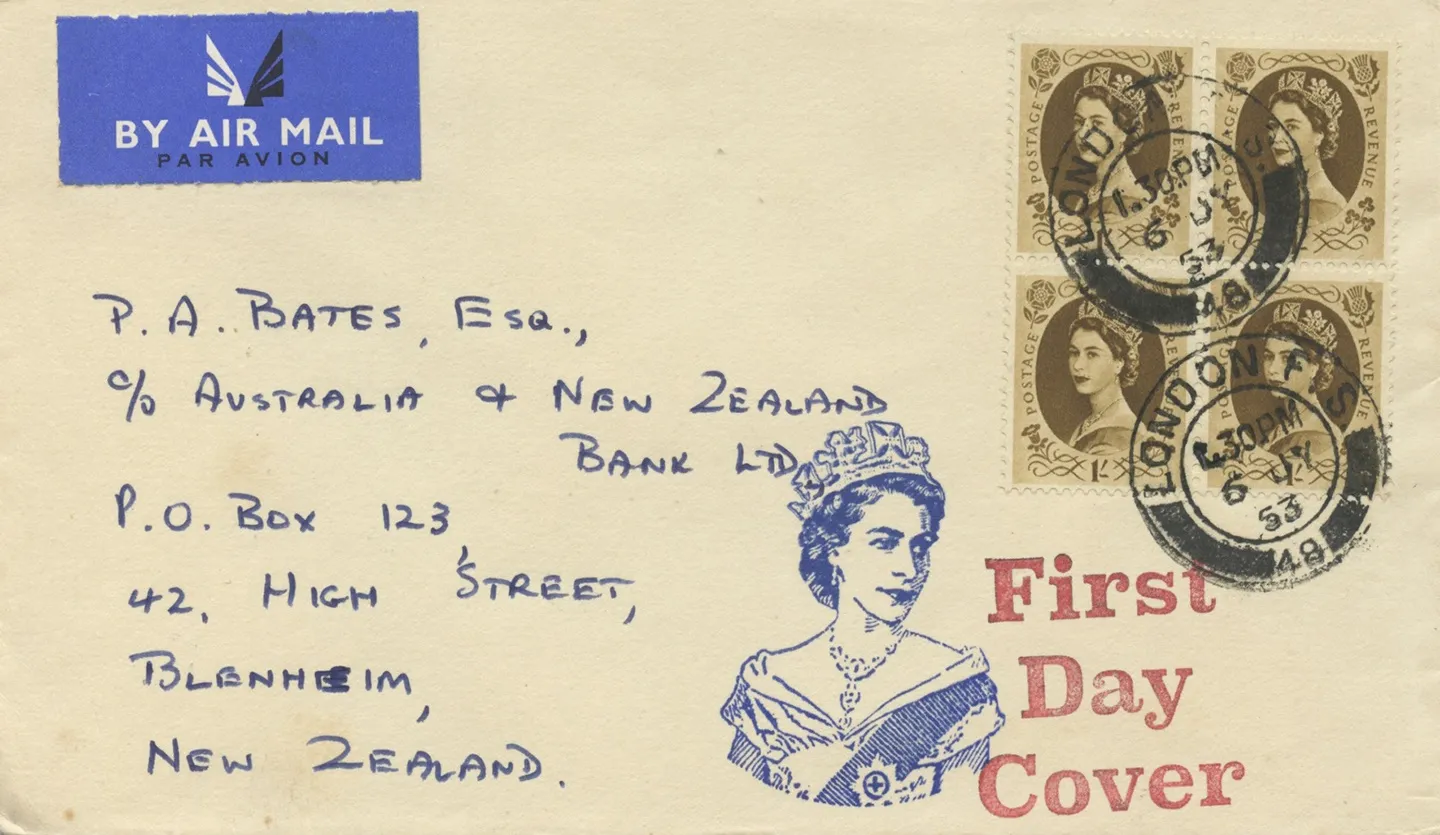 BY AIR MAIL
PAR AVION
P. A. BATES, ESQ.,
c/o AUSTRALIA & NEW ZEALAND
BANK LTD,
P.O. BOX 123,
42, HIGH STREET,
BLENHEIM,
NEW ZEALAND.
POSTAGE REVENUE
POSTAGE REVENUE
POSTAGE REVENUE 1/-
POSTAGE REVENUE 1/-
LONDON
1.30PM
6 JY
53
48
LONDON F.S.
1.30PM
6 JY
53
48
First
Day
Cover